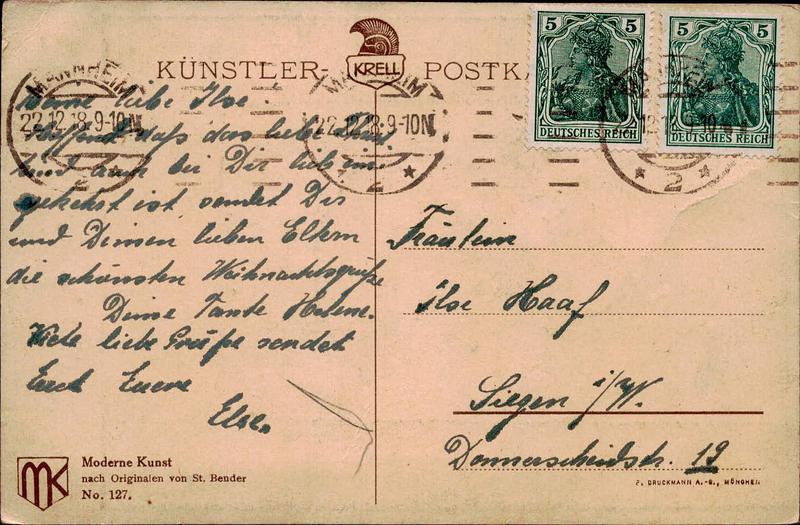 KRELL
KÜNSTLER- POSTKA
5 5
DEUTSCHES REICH
5 5
DEUTSCHES REICH
MANNHEIM
22.12.18.9-10N
2
MANNHEIM
22.12.18.9-10N
2
Meine liebe Ilse.
Hoffend daß das liebe
und auch bei Dir lieb ein-
gekehrt ist sendet Dir
und Deinen lieben Eltern
die schönsten Weihnachtsgrüße
Deine Tante Helene.
Viele liebe Grüße sendet
Euch Euere
Else.
Fräulein
Ilse Haaf
Siegen i/W.
Donnerscheidstr. 19
MK
Moderne Kunst
nach Originalen von St. Bender
No. 127.
F. BRUCKMANN A.-G., MÜNCHEN